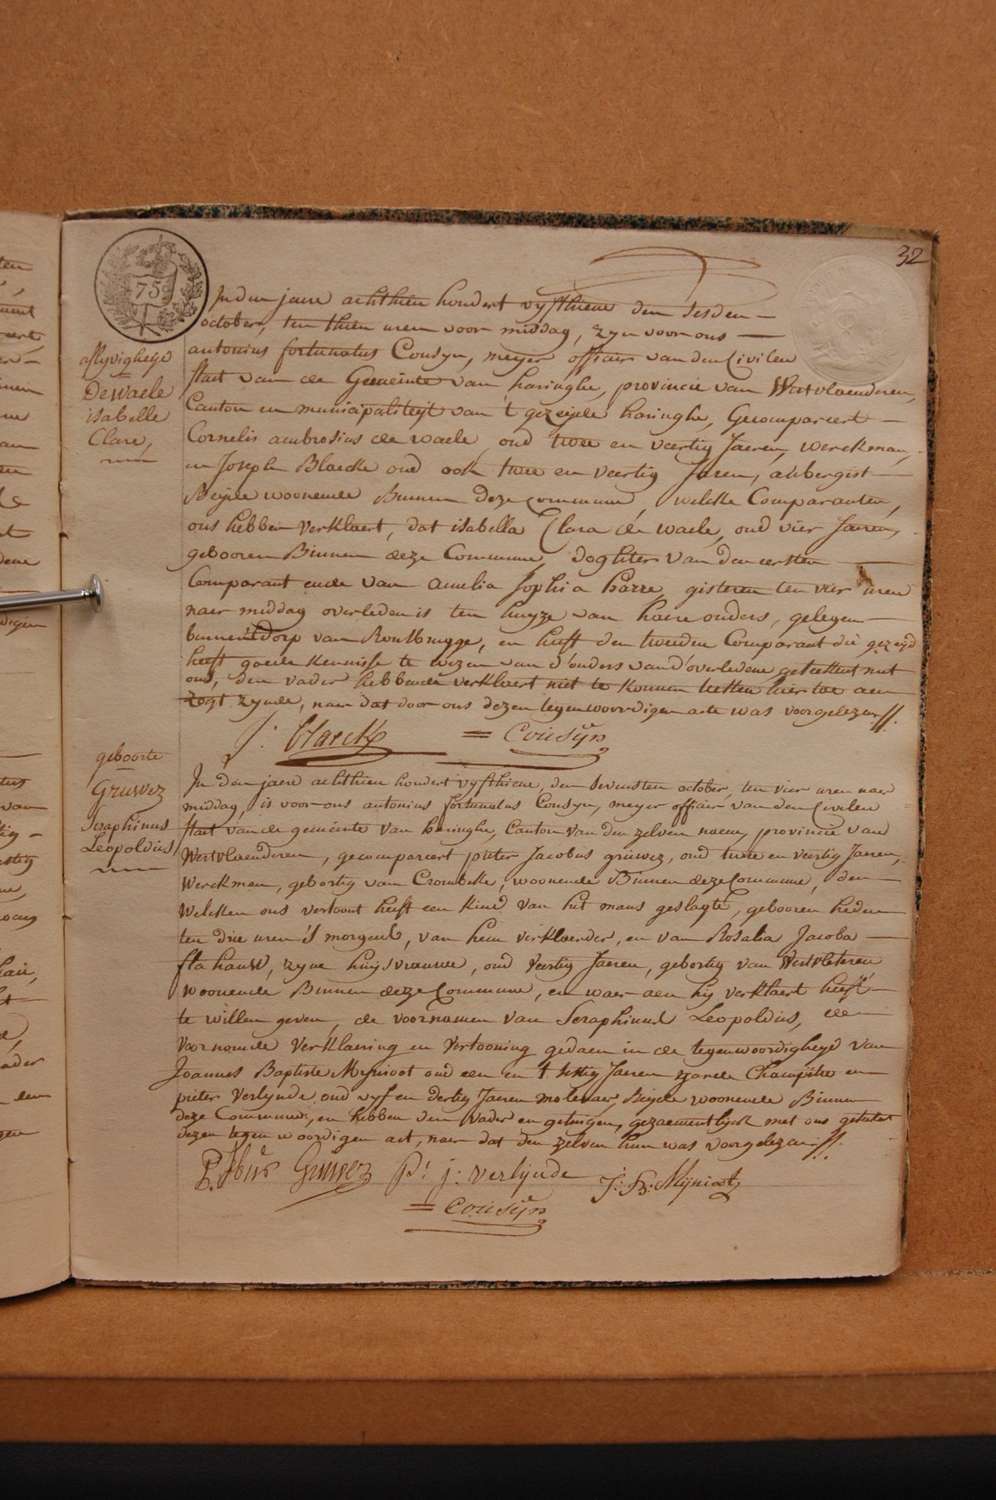 32
75
In den jaere achthien hondert vyfthiene den sesden
october, ten thien uren voor middag, zyn voor ons
antonius fortunatus Cousyn, meyer officier van den Civilen
staet van de Gemeinte van haringhe, provincie van Westvlaenderen,
Canton en municipaliteyt van 't gezeyde haringhe, Gecompareert
Cornelis ambrosius de waele oud twee en veertig Jaeren, werckman,
en Joseph Blaecke oud ook twee en veertig Jaeren, abbergist
Beyde woonende Binnen deze Commune, welcke Comparanten,
ons hebben verklaert, dat isabella Clara de waele, oud vier Jaeren,
gebooren Binnen deze Commune, doghter van den eersten
Comparant ende van amelia Sophia harre, gisteren ten vier uren
naer middag overleden is ten huyze van haere ouders, gelegen
binnen 't dorp van Rousbrugge, en heeft den tweeden Comparant die gezeyd
heeft goede kennisse te wezen van d'ouders van d'overledene geteekent met
ons, den vader hebbende verklaert niet te konnen teeken hier toe aen
zogt zynde, naer dat door ons dezen tegenwoordigen acte was voorgelezen //.
aflyvigheyd
De waele
isabelle
Clare,
J: Blaeckx = Cousyn
geboorte
Gruwez
Seraphinus
Leopoldus
In den jaere achthien hondert vyfthiene, den sevensten october, ten vier uren naer
middag, is voor ons antonius fortunatus Cousyn, meyer officier van den Civilen
staet van de gemeinte van haringhe, Canton van den zelven naem, provincie van
Westvlaenderen, gecompareert pieter Jacobus gruwez, oud twee en veertig Jaeren,
Werckman, gebortig van Crombeke, woonende Binnen deze Commune, den
Welcken ons vertoont heeft een kind van het mans geslagte, gebooren heden
ten drie uren 's morgens, van hem verklaerder, en van Rosalia Jacoba
flahauw, zyne huysvrouwe, oud Veertig Jaeren, gebortig van Westvleteren
woonende Binnen deze Commune, en waer aen hij verklaert heeft
te willen geven, de voornamen van Seraphinus Leopoldus, de
voornoemde verklaering en vertooning gedaen in de tegenwoordigheyd van
Joannes Baptiste Mynioot oud een en Jaeren Champitre en
pieter Verlynde oud vyf en dertig Jaeren molenaer, Beyde woonende Binnen
deze Commune, en hebben den vader en getuigen, gezaementlyck met ons geteekent
dezen tegenwoordigen act, naer dat den zelven hun was voorgelezen //.
P. Jbus Gruwez pr j: verlynde J: B: Mynioot
= Cousyn